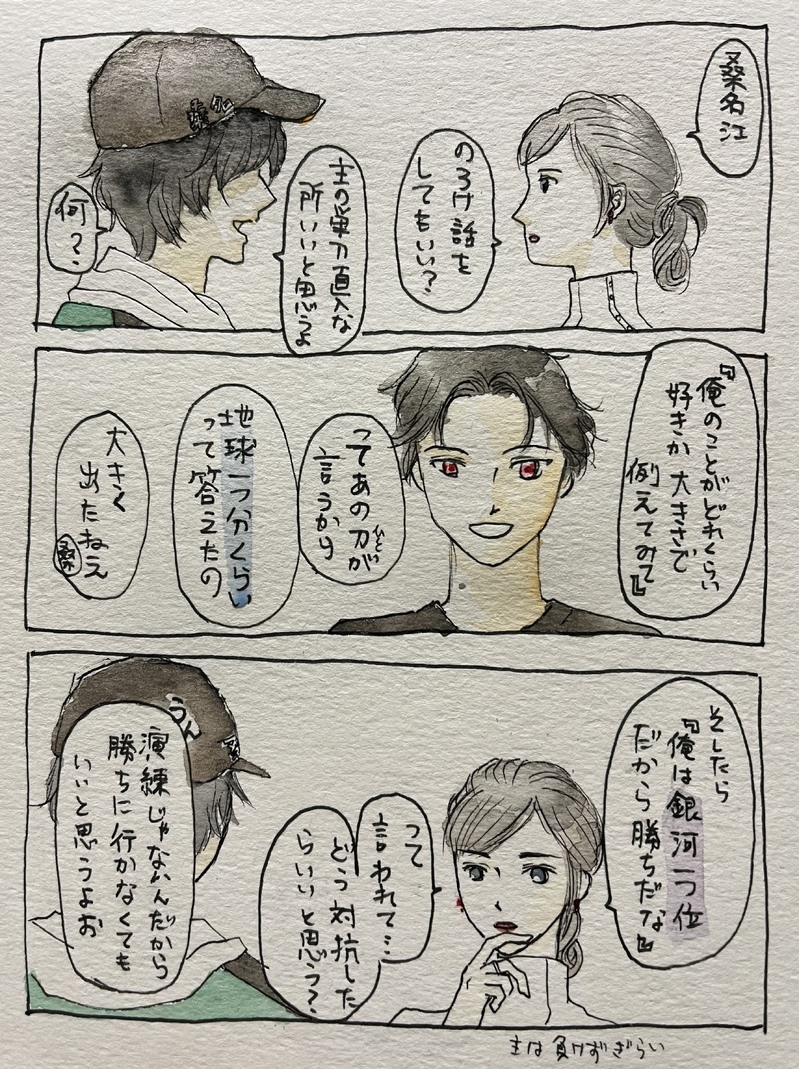 桑名江
のろけ話を
してもいい?
主の単刀直入な
所いいと思うよ
何?
『俺のことがどれくらい
好きか大きさで
例えてみて』
ってあの刀が
ひと
言うから
地球一つ分くらい
って答えたの
大きく
出たねえ
桑
そしたら
『俺は銀河一つ位
だから勝ちだな』
って
言われて…
どう対抗した
らいいと思う?
うん
演練じゃないんだから
勝ちに行かなくても
いいと思うよお
主は負けずぎらい